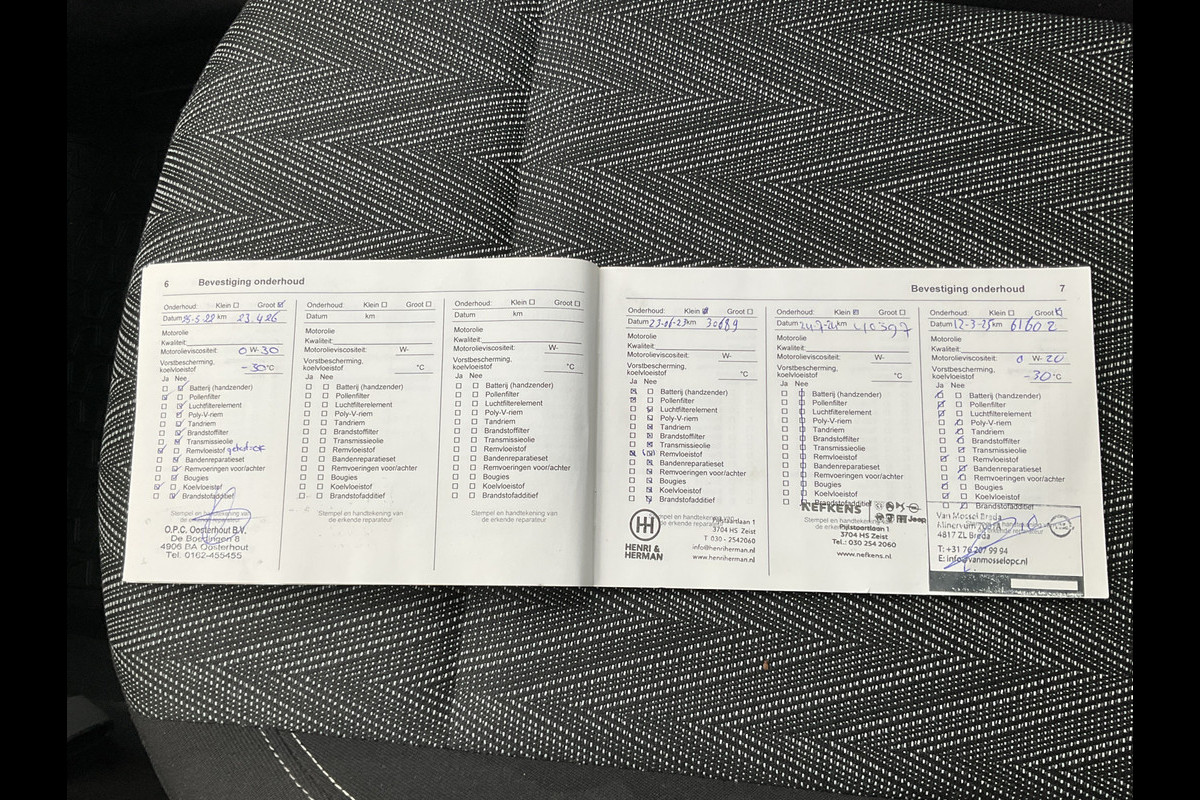 6 Bevestiging onderhoud
Onderhoud: Klein ☐ Groot ☑
Datum km 23.426
Motorolie
Kwaliteit:
Motorolieviscositeit: 0 W- 30
Vorstbescherming,
koelvloeistof -30 °C
Ja Nee
☐ ☑ Batterij (handzender)
☑ ☐ Pollenfilter
☐ ☑ Luchtfilterelement
☐ ☑ Poly-V-riem
☐ ☑ Tandriem
☐ ☑ Brandstoffilter
☐ ☑ Transmissieolie
☑ ☐ Remvloeistof
☐ ☑ Bandenreparatieset
☐ ☑ Remvoeringen voor/achter
☐ ☑ Bougies
☑ ☐ Koelvloeistof
☐ ☑ Brandstofadditief
Stempel en handtekening van
de erkende reparateur
O.P.C. Oosterhout B.V.
De Boedingen 8
4906 BA Oosterhout
Tel. 0162-455455
Onderhoud: Klein ☐ Groot ☐
Datum km
Motorolie
Kwaliteit:
Motorolieviscositeit: W-
Vorstbescherming,
koelvloeistof °C
Ja Nee
☐ ☐ Batterij (handzender)
☐ ☐ Pollenfilter
☐ ☐ Luchtfilterelement
☐ ☐ Poly-V-riem
☐ ☐ Tandriem
☐ ☐ Brandstoffilter
☐ ☐ Transmissieolie
☐ ☐ Remvloeistof
☐ ☐ Bandenreparatieset
☐ ☐ Remvoeringen voor/achter
☐ ☐ Bougies
☐ ☐ Koelvloeistof
☐ ☐ Brandstofadditief
Stempel en handtekening van
de erkende reparateur
Onderhoud: Klein ☐ Groot ☐
Datum km
Motorolie
Kwaliteit:
Motorolieviscositeit: W-
Vorstbescherming,
koelvloeistof °C
Ja Nee
☐ ☐ Batterij (handzender)
☐ ☐ Pollenfilter
☐ ☐ Luchtfilterelement
☐ ☐ Poly-V-riem
☐ ☐ Tandriem
☐ ☐ Brandstoffilter
☐ ☐ Transmissieolie
☐ ☐ Remvloeistof
☐ ☐ Bandenreparatieset
☐ ☐ Remvoeringen voor/achter
☐ ☐ Bougies
☐ ☐ Koelvloeistof
☐ ☐ Brandstofadditief
Stempel en handtekening van
de erkende reparateur
Bevestiging onderhoud 7
Onderhoud: Klein ☑ Groot ☐
Datum km 30689
Motorolie
Kwaliteit:
Motorolieviscositeit: W-
Vorstbescherming,
koelvloeistof °C
Ja Nee
Batterij (handzender)
Pollenfilter
Luchtfilterelement
Poly-V-riem
Tandriem
Brandstoffilter
Transmissieolie
Remvloeistof
Bandenreparatieset
Remvoeringen voor/achter
Bougies
Koelvloeistof
Brandstofadditief
Stempel en handtekening van
de erkende reparateur
HH
HENRI &
HERMAN
3704 HS Zeist
T 030 - 2542060
info@henriherman.nl
www.henriherman.nl
Onderhoud: Klein ☑ Groot ☐
Datum km
Motorolie
Kwaliteit:
Motorolieviscositeit: W-
Vorstbescherming,
koelvloeistof °C
Ja Nee
Batterij (handzender)
Pollenfilter
Luchtfilterelement
Poly-V-riem
Tandriem
Brandstoffilter
Transmissieolie
Remvloeistof
Bandenreparatieset
Remvoeringen voor/achter
Bougies
Koelvloeistof
Brandstofadditief
NEFKENS
Jeep
Pijlstaartlaan 1
3704 HS Zeist
Tel.: 030 254 2060
www.nefkens.nl
Onderhoud: Klein ☐ Groot ☑
Datum 12-3-25 km 61602
Motorolie
Kwaliteit:
Motorolieviscositeit: 0 W- 20
Vorstbescherming,
koelvloeistof -30 °C
Ja Nee
Batterij (handzender)
Pollenfilter
Luchtfilterelement
Poly-V-riem
Tandriem
Brandstoffilter
Transmissieolie
Remvloeistof
Bandenreparatieset
Remvoeringen voor/achter
Bougies
Koelvloeistof
Brandstofadditief
Van Mossel Breda
Minervum
4817 ZL Breda
T: +31 76 207 99 94
E: info@vanmosselopc.nl